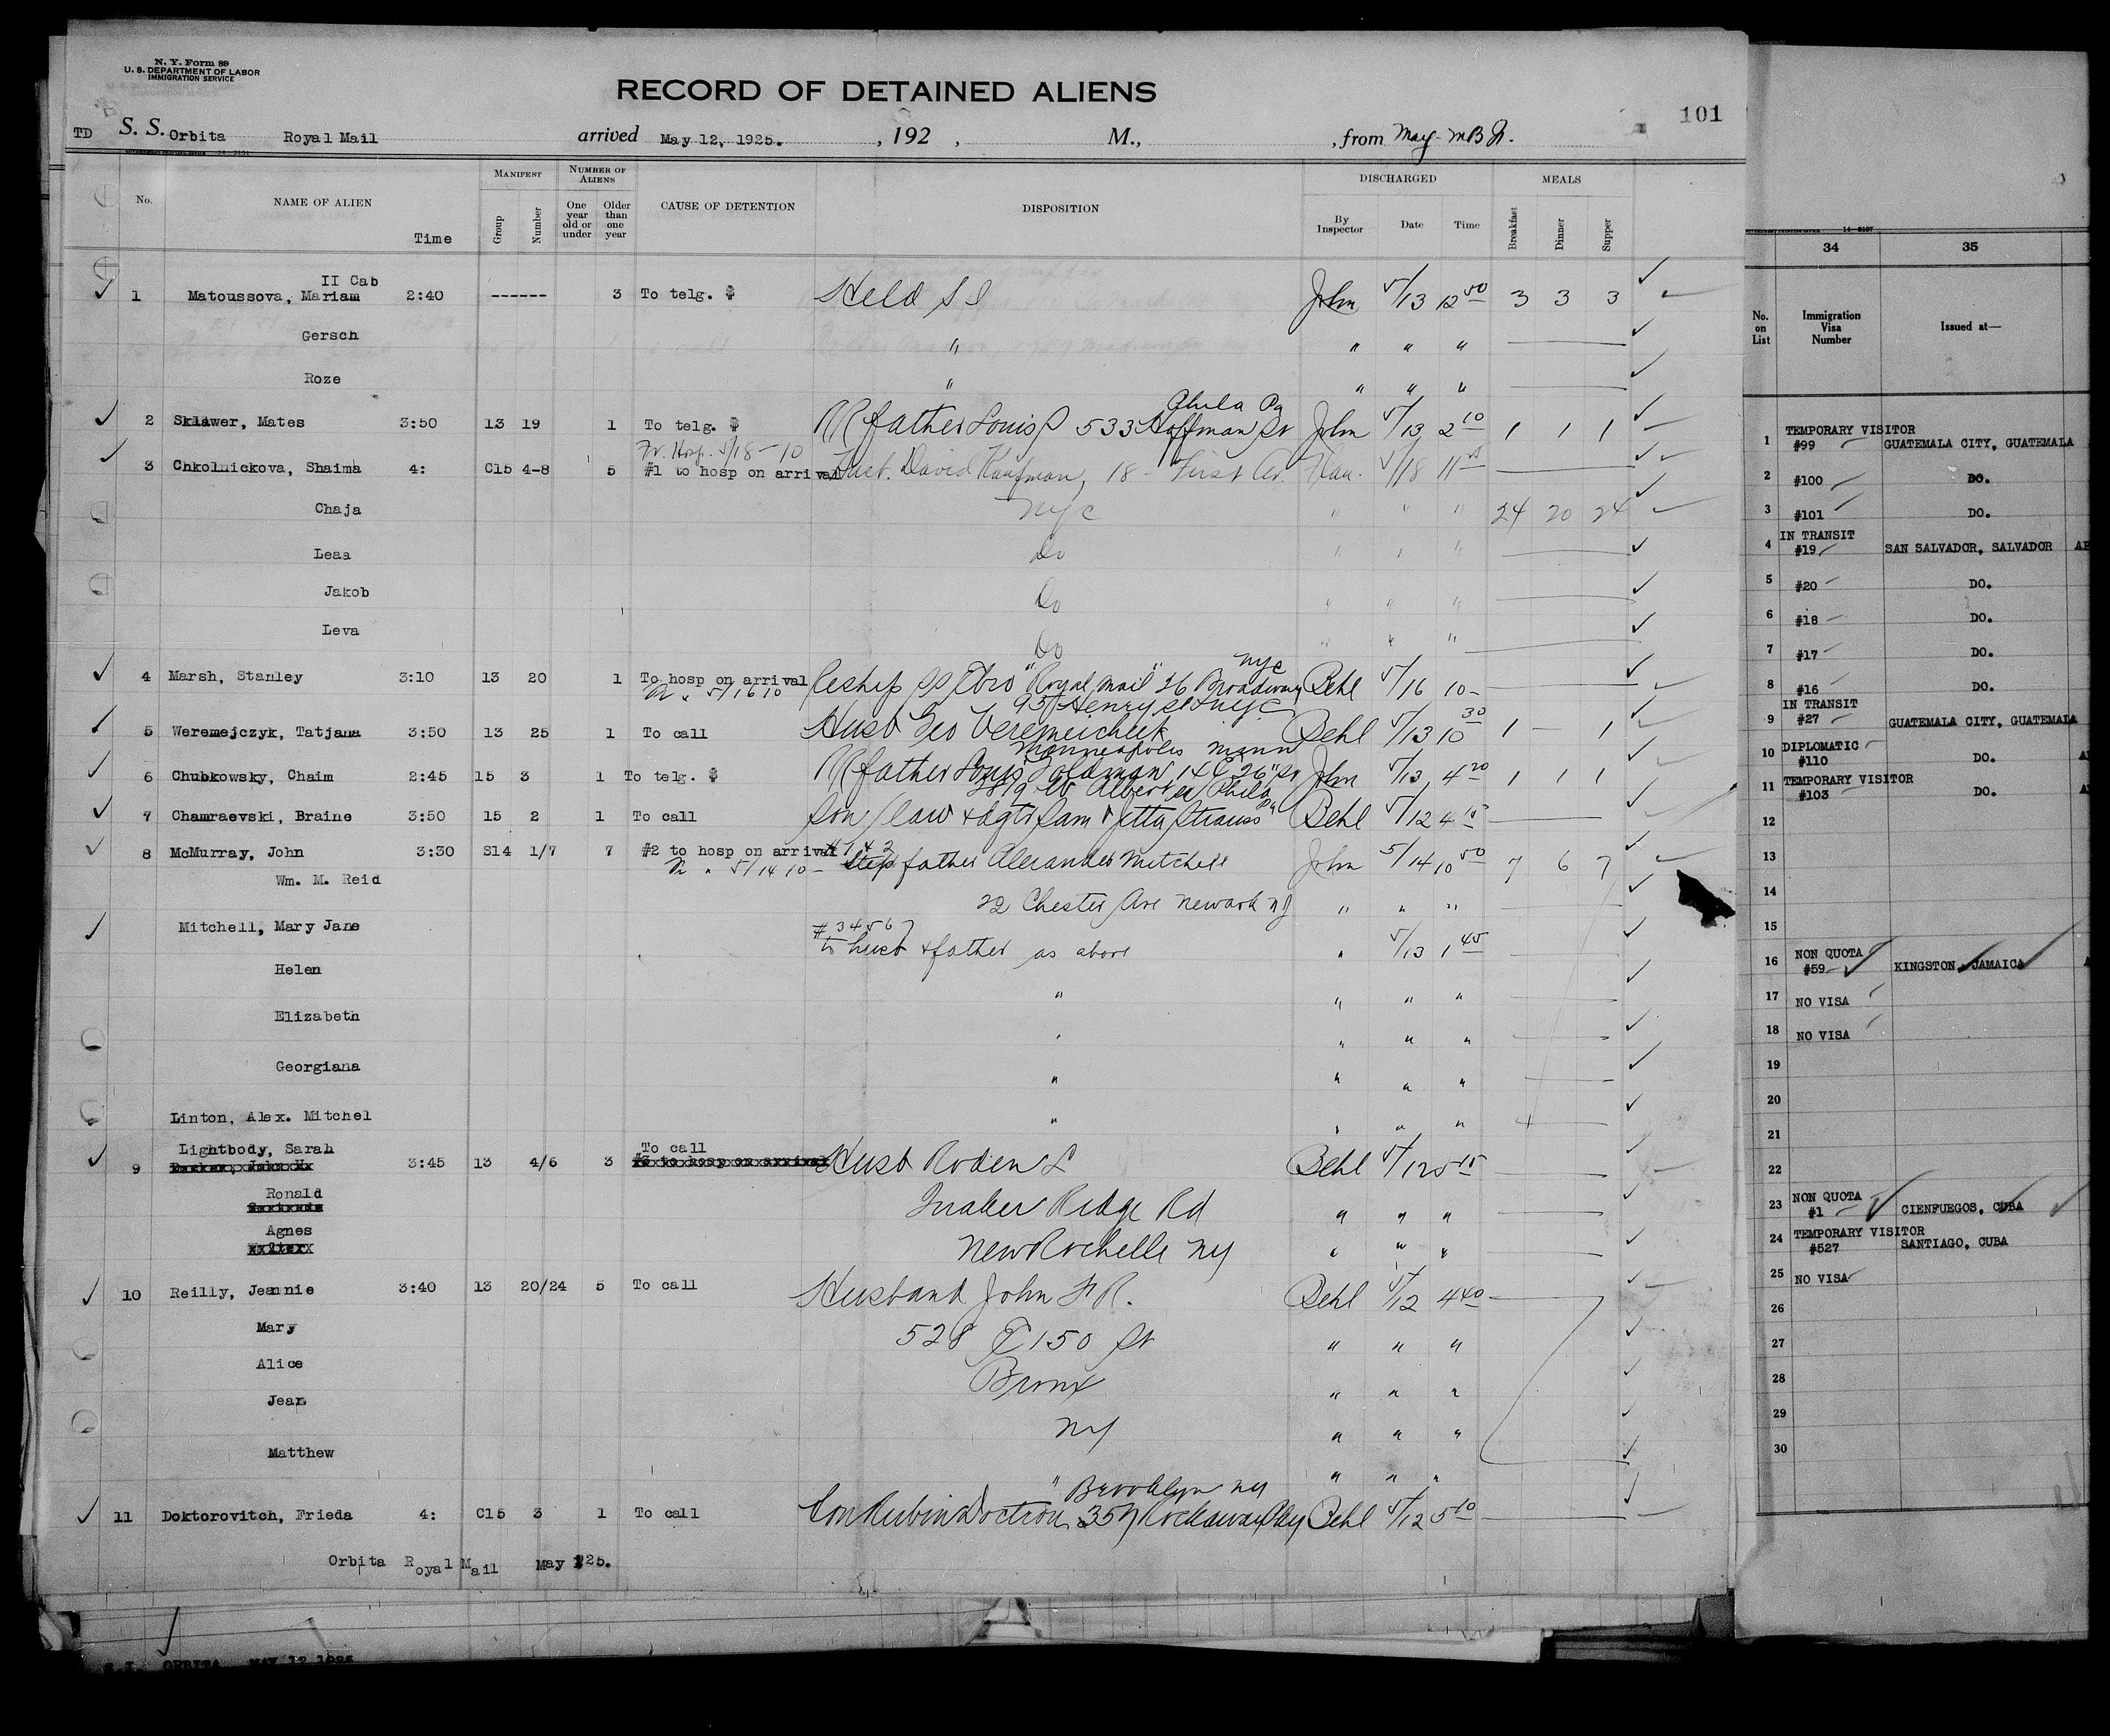 N. Y. Form 89
U. S. DEPARTMENT OF LABOR
IMMIGRATION SERVICE
RECORD OF DETAINED ALIENS
101
TD S. S. Orbita Royal Mail arrived May 12, 1925. , 192 , M., , from May
No. NAME OF ALIEN Time MANIFEST Group Number NUMBER OF ALIENS One year old or under Older than one year CAUSE OF DETENTION DISPOSITION DISCHARGED By Inspector Date Time MEALS Breakfast Dinner Supper
II Cab
1 Matoussova, Mariam 2:40 ------ 3 To telg. $ Held S I John 5/13 12 50 3 3 3
Gersch " " " "
Roze " " " "
Phila Pa
2 Skliawer, Mates 3:50 13 19 1 To telg. $ father Louis S 533 Hoffman St John 5/13 2 10 1 1 1
Fr. Hosp. 5/18-10
3 Chkolnickova, Shaima 4: C15 4-8 5 #1 to hosp on arrival David Kaufman, 18 - First Av. 5/18 11
Chaja NYC " " " 24 20 24
Leaa Do " " "
Jakob Do " " "
Leva Do " " "
NYC
4 Marsh, Stanley 3:10 13 20 1 To hosp on arrival Reship SS Ebro "Royal Mail" 26 Broadway Behl 5/16 10-
" 5/16 10
95 Henry St NYC
5 Weremejczyk, Tatjana 3:50 13 25 1 To call Husb Geo Veremeicheek Behl 5/13 10 30 1 - 1
Minneapolis Minn
6 Chubkowsky, Chaim 2:45 15 3 1 To telg. $ father Louis Goldman 14 E 26" St John 5/13 4 20 1 1 1
Phila Pa
7 Chamraevski, Braine 3:50 15 2 1 To call Son/law & dgtr Sam & Jetta Strauss Behl 5/12 4 15
#1 & 2
8 McMurray, John 3:30 S14 1/7 7 #2 to hosp on arrival Step father Alexander Mitchell John 5/14 10 50 7 6 7
" 5/14 10-
Wm. M. Reid 22 Chester Ave Newark NJ " " "
#34567
Mitchell, Mary Jane to husb & father as above " 5/13 1 45
Helen " " " "
Elizabeth " " " "
Georgiana " " " "
Linton, Alex. Mitchel " " " "
Lightbody, Sarah To call
9 3:45 13 4/6 3 #3 to hosp on arrival Husb Roden L Behl 5/12 5 15
Ronald Quaker Ridge Rd " " "
Agnes New Rochelle NY " " "
10 Reilly, Jeannie 3:40 13 20/24 5 To call Husband John F R. Behl 5/12 4 40
Mary 528 E 150 St " " "
Alice Bronx " " "
Jean NY " " "
Matthew " " " "
Brooklyn NY
11 Doktorovitch, Frieda 4: C15 3 1 To call Son Rubin Doctrow 357 Rockaway Pky Behl 5/12 5 10
Orbita Royal Mail May 125.
ORBITA MAY 12 1925
34 35
No. on List Immigration Visa Number Issued at—
TEMPORARY VISITOR
1 #99 GUATEMALA CITY, GUATEMALA
2 #100 DO.
3 #101 DO.
IN TRANSIT
4 #19 SAN SALVADOR, SALVADOR
5 #20 DO.
6 #18 DO.
7 #17 DO.
8 #16 DO.
IN TRANSIT
9 #27 GUATEMALA CITY, GUATEMALA
DIPLOMATIC
10 #110 DO.
TEMPORARY VISITOR
11 #103 DO.
12
13
14
15
NON QUOTA
16 #59 KINGSTON, JAMAICA
17 NO VISA
18 NO VISA
19
20
21
22
NON QUOTA
23 #1 CIENFUEGOS, CUBA
TEMPORARY VISITOR
24 #527 SANTIAGO, CUBA
25 NO VISA
26
27
28
29
30